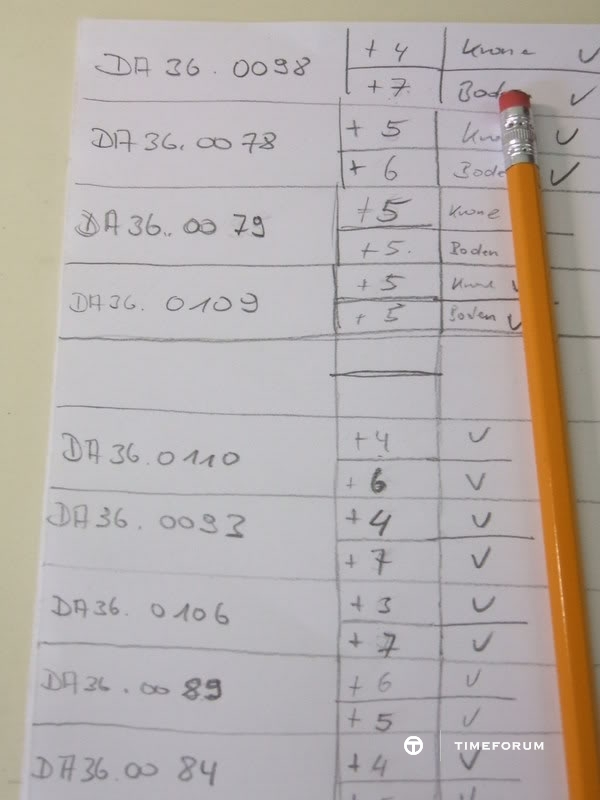 DA 36. 0098 +4 Krone ✓
+7 ✓
DA 36. 0078 +5 ✓
+6 ✓
DA 36. 0079 +5 Krone
+5. Boden
DA 36. 0109 +5 Krone ✓
+5 Boden ✓
DA 36. 0110 +4 ✓
+6 ✓
DA 36. 0093 +4 ✓
+7 ✓
DA 36. 0106 +3 ✓
+7 ✓
DA 36. 0089 +6 ✓
+5 ✓
DA 36. 00 84 +4 ✓
TIMEFORUM